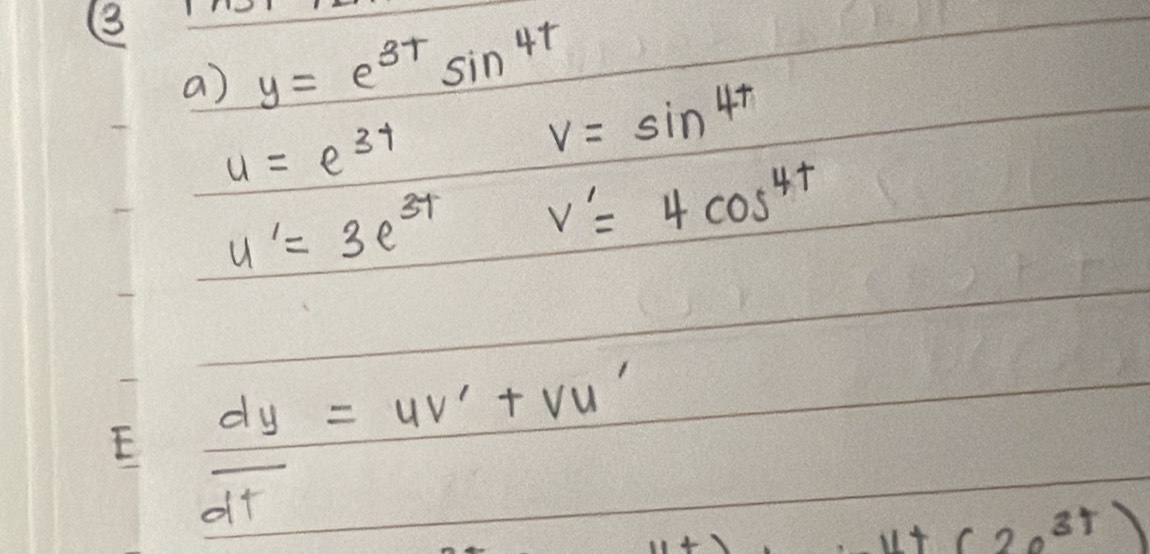 (3
a) y = e^{3t} sin^{4t}
u = e^{3t} v = sin^{4t}
u' = 3e^{3t} v' = 4 cos^{4t}
E dy/dt = uv' + vu'